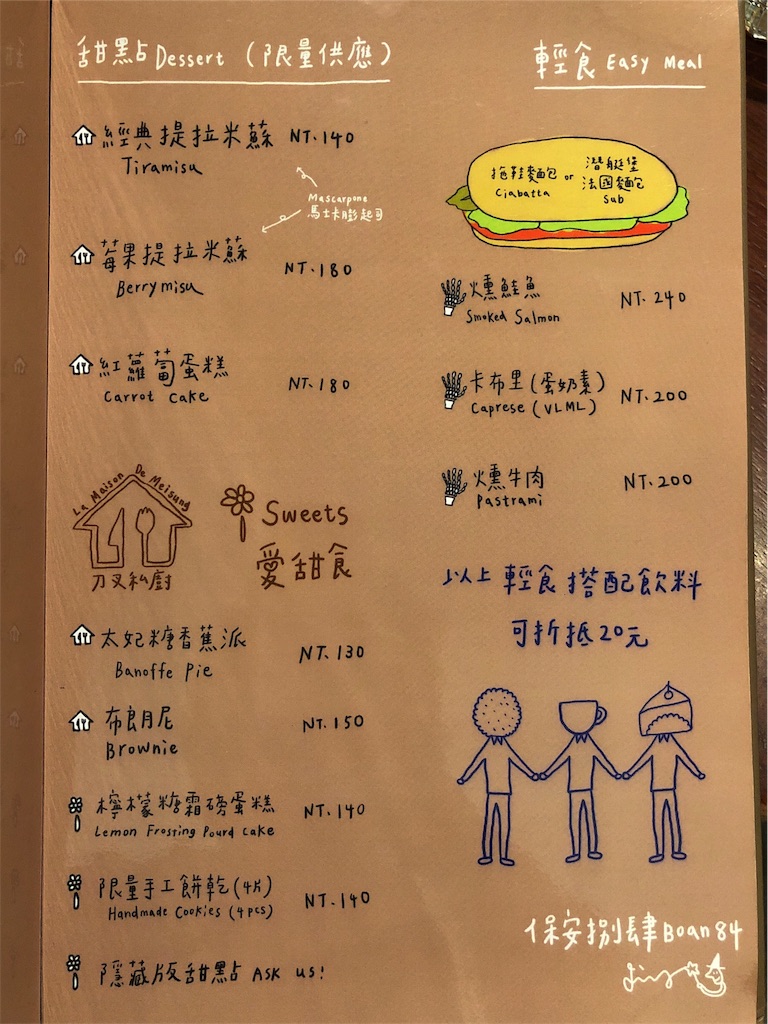 甜點 Dessert (限量供應)
經典提拉米蘇 NT.140
Tiramisu
Mascarpone
馬士卡膨起司
莓果提拉米蘇 NT.180
Berrymisu
紅蘿蔔蛋糕 NT.180
Carrot Cake
La Maison De Meisung
刀叉私廚
Sweets
愛甜食
太妃糖香蕉派 NT.130
Banoffe Pie
布朗尼 NT.150
Brownie
檸檬糖霜磅蛋糕 NT.140
Lemon Frosting Pound cake
限量手工餅乾(4片) NT.140
Handmade Cookies (4pcs)
隱藏版甜點 ASK us!
輕食 Easy Meal
拖鞋麵包 or 潛艇堡
Ciabatta 法國麵包
Sub
燻鮭魚 NT.240
Smoked Salmon
卡布里(蛋奶素) NT.200
Caprese (VLML)
燻牛肉 NT.200
Pastrami
以上輕食搭配飲料
可折抵20元
保安捌肆 Boan 84